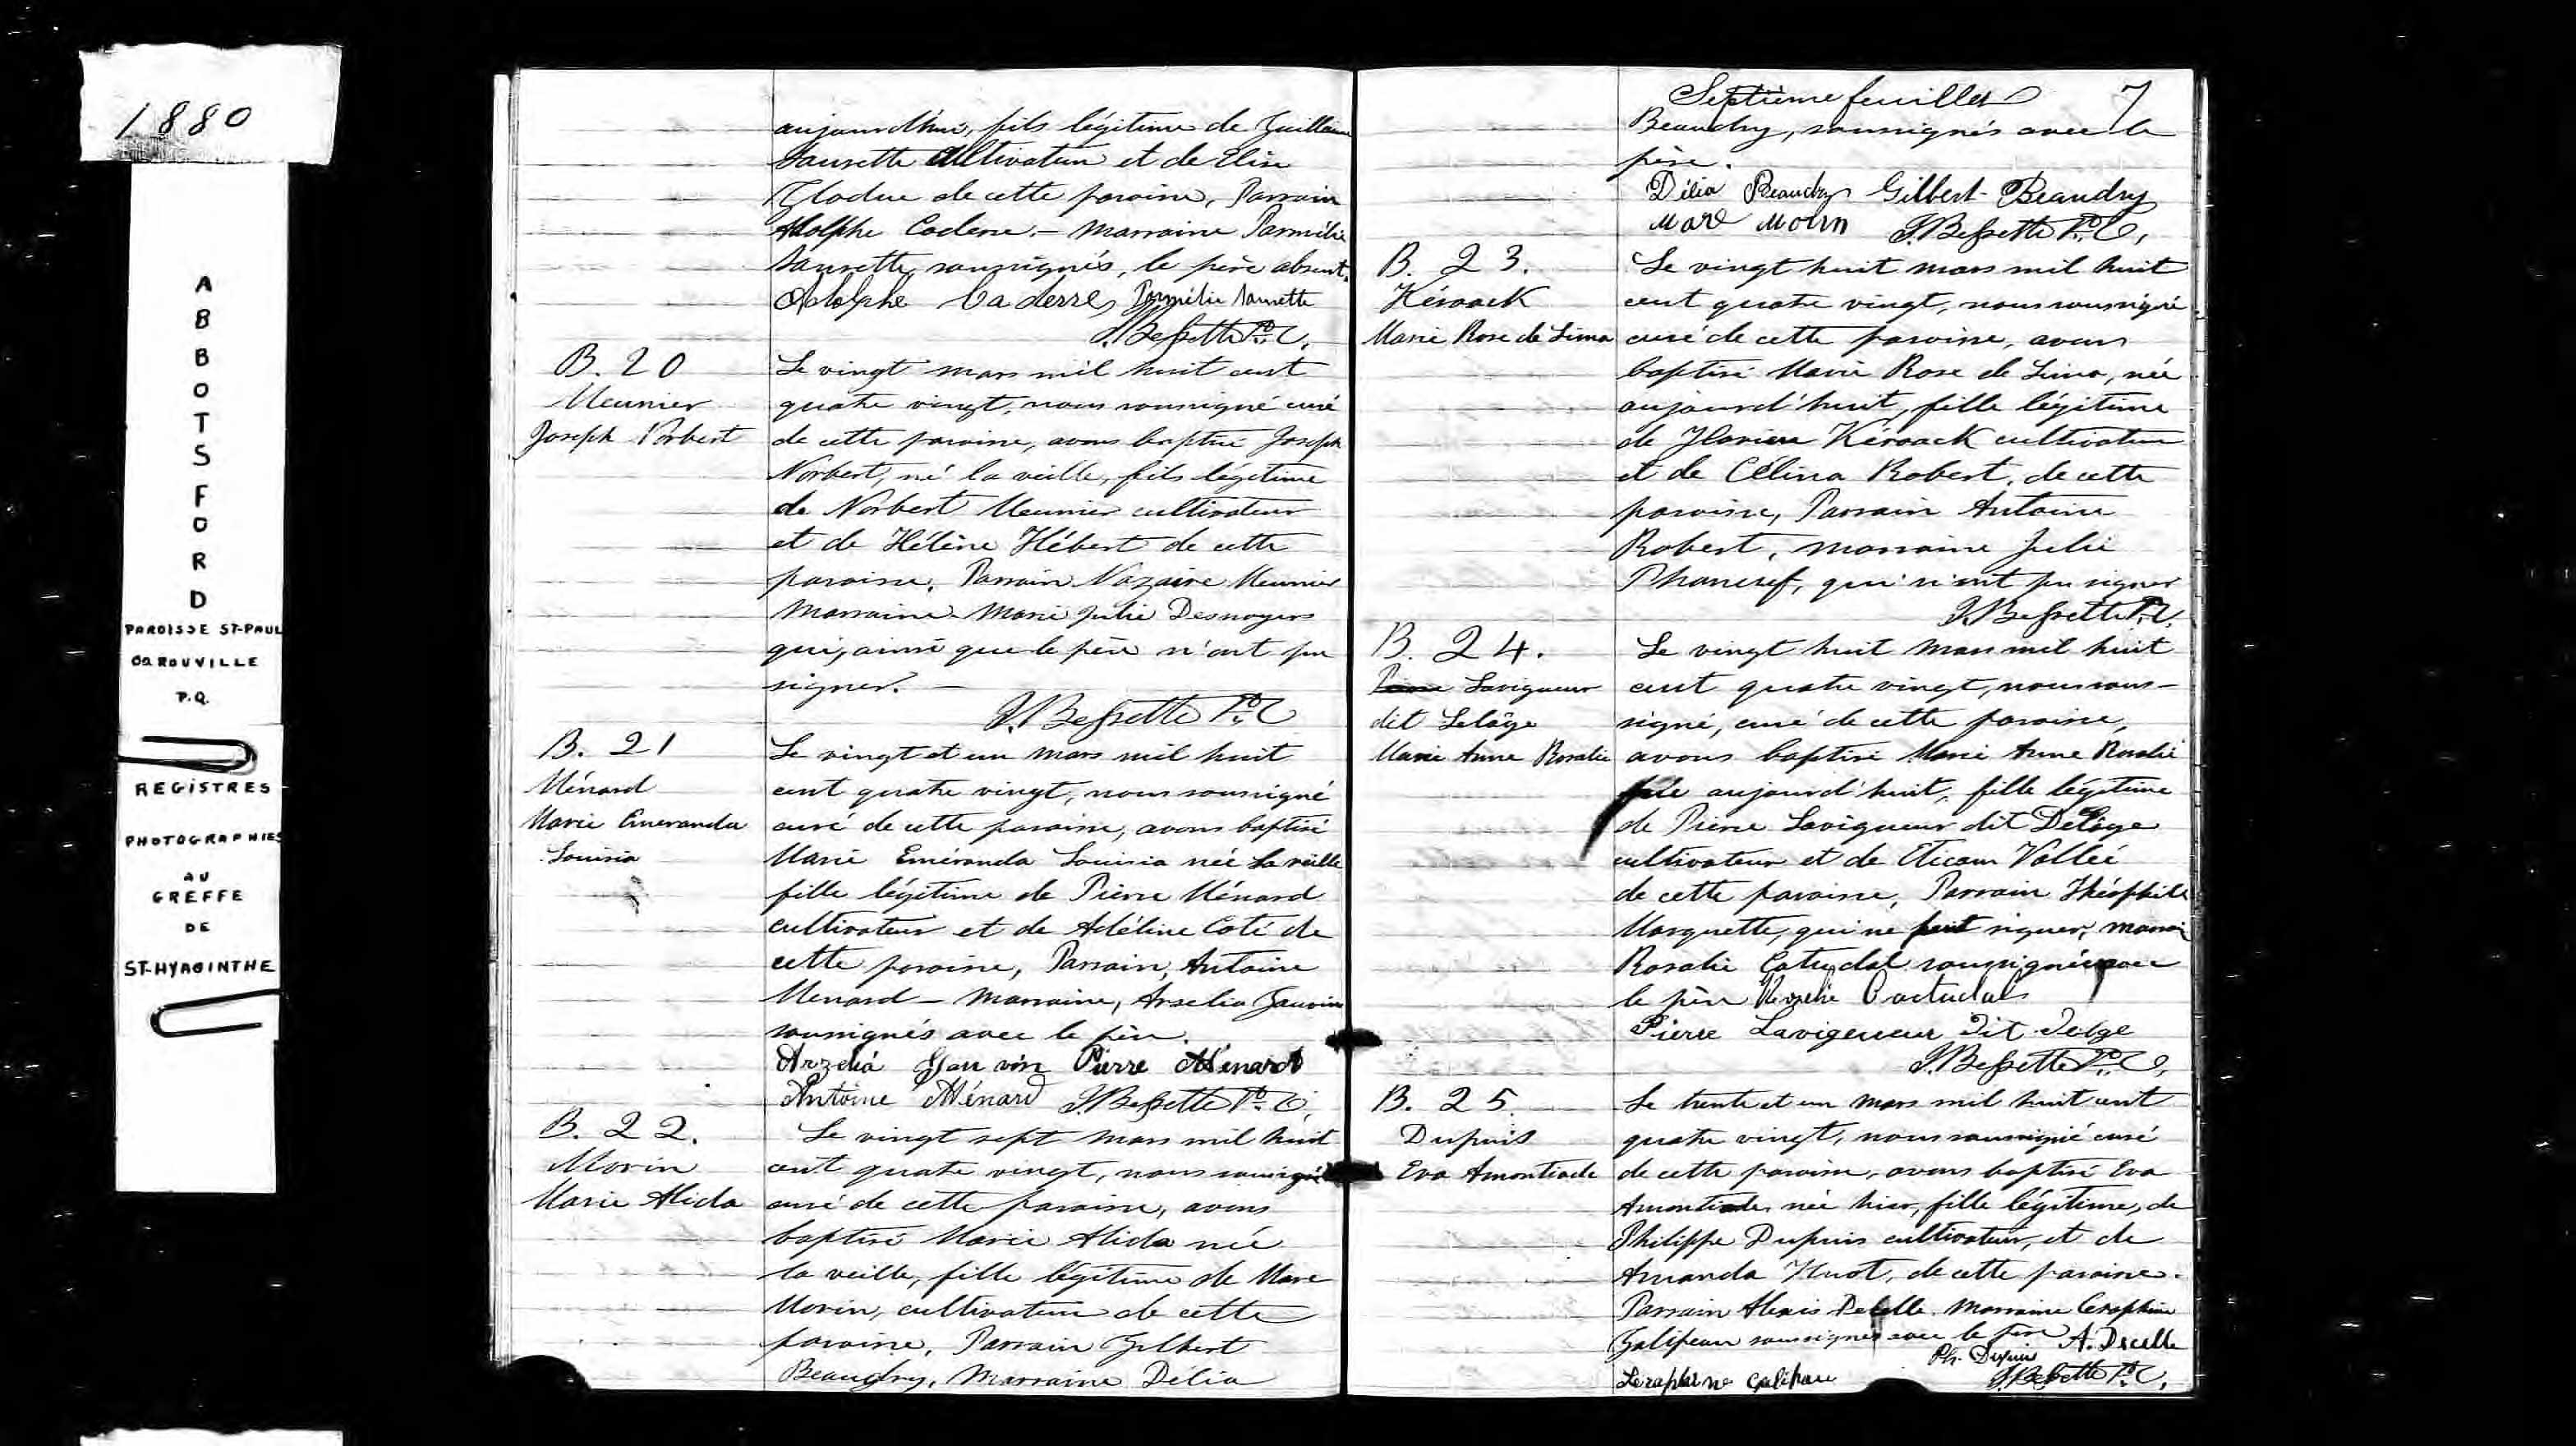 1880
ABBOTSFORD
PAROISSE ST-PAUL
Co ROUVILLE
P.Q.
REGISTRES
PHOTOGRAPHIES
AU
GREFFE
DE
ST-HYACINTHE
aujourd'hui, fils légitime de Guillaume
cultivateur et de
de cette paroisse, Parrain
Adolphe Marraine Parmélie
soussignés, le père absent.
Adolphe Parmélie
J. Bessette Ptre C.
B. 20
Meunier
Joseph Norbert
Le vingt mars mil huit cent
quatre vingt, nous soussigné curé
de cette paroisse, avons baptisé Joseph
Norbert, né la veille, fils légitime
de Norbert Meunier cultivateur
et de Hélène Hébert de cette
paroisse. Parrain Nazaire Meunier
Marraine Marie Julie Desnoyers
qui, ainsi que le père n'ont pu
signer.
J. Bessette Ptre C
B. 21
Ménard
Marie Emeranda
Louisia
Le vingt et un mars mil huit
cent quatre vingt, nous soussigné
curé de cette paroisse, avons baptisé
Marie Eméranda Louisia née la veille
fille légitime de Pierre Ménard
cultivateur et de Adéline Coté de
cette paroisse, Parrain, Antoine
Menard – Marraine, Arselia Gauvin
soussignés avec le père.
Arzelia Gauvin Pierre Ménard
Antoine Ménard J. Bessette Ptre C.
B. 22.
Morin
Marie Alida
Le vingt sept mars mil huit
cent quatre vingt, nous soussigné
curé de cette paroisse, avons
baptisé Marie Alida née
la veille, fille légitime de Marc
Morin, cultivateur de cette
paroisse, Parrain Gilbert
Beaudry, Marraine Délia
Septième feuillet 7
Beaudry, soussignés avec le
père.
Délia Beaudry Gilbert Beaudry
Marc Morin J. Bessette Ptre C.
B. 23.
Kéroack
Marie Rose de Lima
Le vingt huit mars mil huit
cent quatre vingt, nous soussigné
curé de cette paroisse, avons
baptisé Marie Rose de Lima, née
aujourd'huit, fille légitime
de Kéroack cultivateur
et de Célina Robert, de cette
paroisse, Parrain Antoine
Robert, marraine Julie
Phaneuf, qui n'ont pu signer
J. Bessette Ptre C.
B. 24.
Lavigueur
dit Delâge
Marie Anne Rosalie
Le vingt huit mars mil huit
cent quatre vingt, nous sous-
signé, curé de cette paroisse,
avons baptisé Marie Anne Rosalie
née aujourd'huit, fille légitime
de Pierre Lavigueur dit Delâge
cultivateur et de Vallée
de cette paroisse, Parrain Théophile
Marquette, qui ne peut signer,
Rosalie Catudal soussignée avec
le père Rosalie Cactudal
Pierre Lavigeueur Dit Delage
J. Bessette Ptre C.
B. 25.
Dupuis
Eva Amontiade
Le trente et un mars mil huit cent
quatre vingt, nous soussigné curé
de cette paroisse, avons baptisé Eva
Amontiade, née hier, fille légitime, de
Philippe Dupuis cultivateur, et de
Amanda Huot, de cette paroisse.
Parrain Alexis Decelle. Marraine Ceraphine
Galipeau soussignés avec le père A. Decelle
Ph. Dupuis
J. Bessette Ptre C.